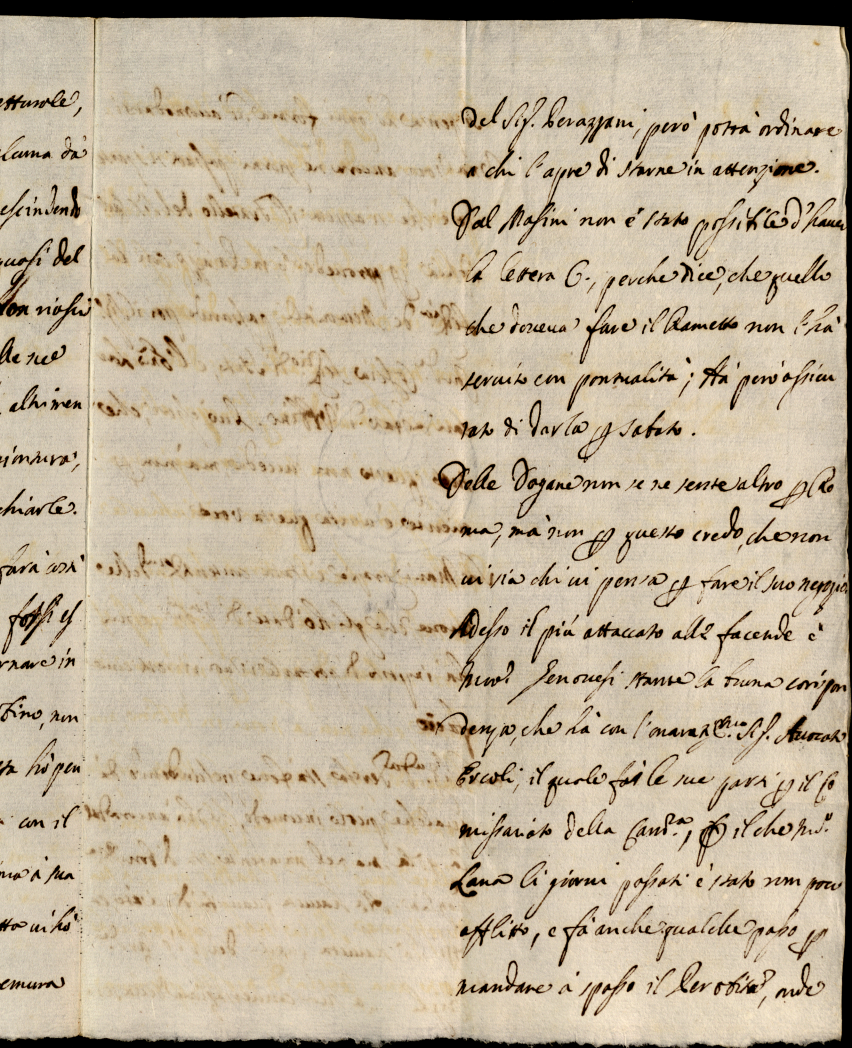 etturole,
luma dà
escindendo
quasi del
non riesci
lle ne
altrimen
chiarle.
farà così
fossi es
rnare in
bino, non
ta hò pen
con il
ma à sua
tto vi hò
emura
Del Sig.r Perazzani, però potrà ordinare
a chi l'apre di starne in attenzione.
Dal Masini non è stato possibile d'haver
la lettera G., perche dice, che quello
che doveva fare il Rametto non l'hà
servito con pontualità; Hà però assicu
rato di darla p sabato.
Delle Dogane non se ne sente altro p Ro
ma, mà non p questo credo, che non
vi sia chi vi pensa p fare il suo negozio
Adesso il più attaccato alle facende è
Genovesi stante la buona corispon
denza, che hà con l'onoraz Sig.r Avocato
Ercoli, il quale fà le sue parti p il Co
missariato della Cam.ra, p il che
Lana li giorni passati è stato non poco
afflitto, e fà anche qualche passo p
mandare à spasso il, onde